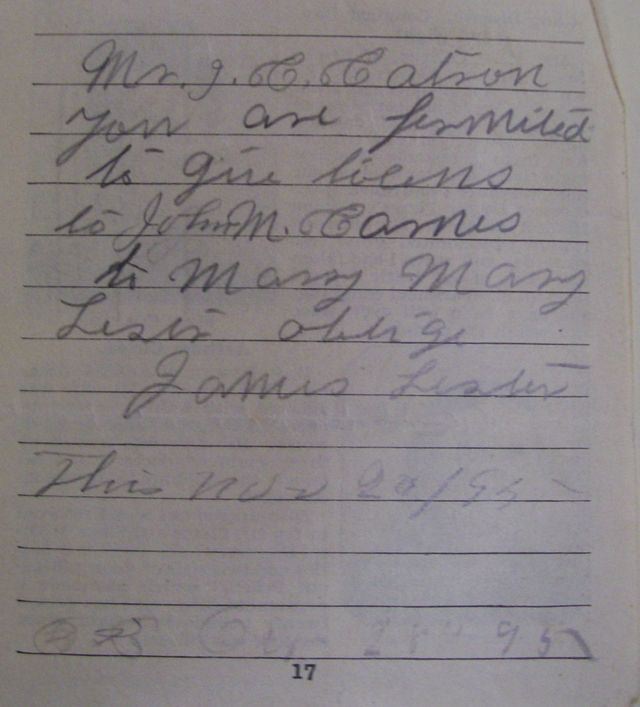 Mr. J. C. Catron
you are permited
to give licens
to John M. Carnes
to Mary Mary
Lester oblige
James Lester
This Nov
17